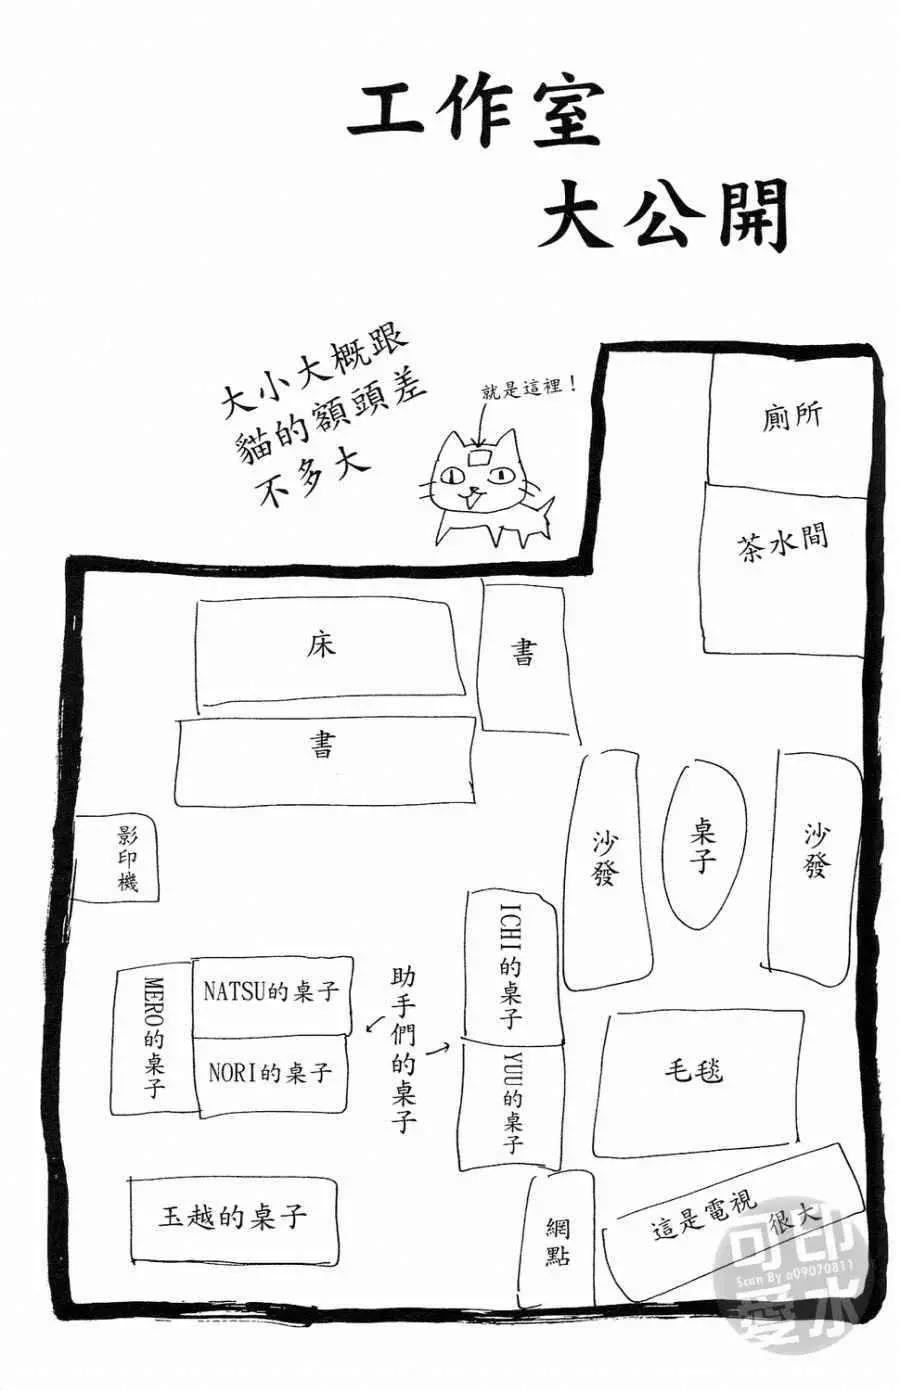 工作室
大公開
大小大概跟
貓的額頭差
不多大
就是這裡！
廁所
茶水間
床
書
書
影印機
沙發
桌子
沙發
ICHI的桌子
助手們的桌子
MERO的桌子
NATSU的桌子
NORI的桌子
YUU的桌子
毛毯
玉越的桌子
網點
這是電視
很大
可印
Scan By a09070811
愛水